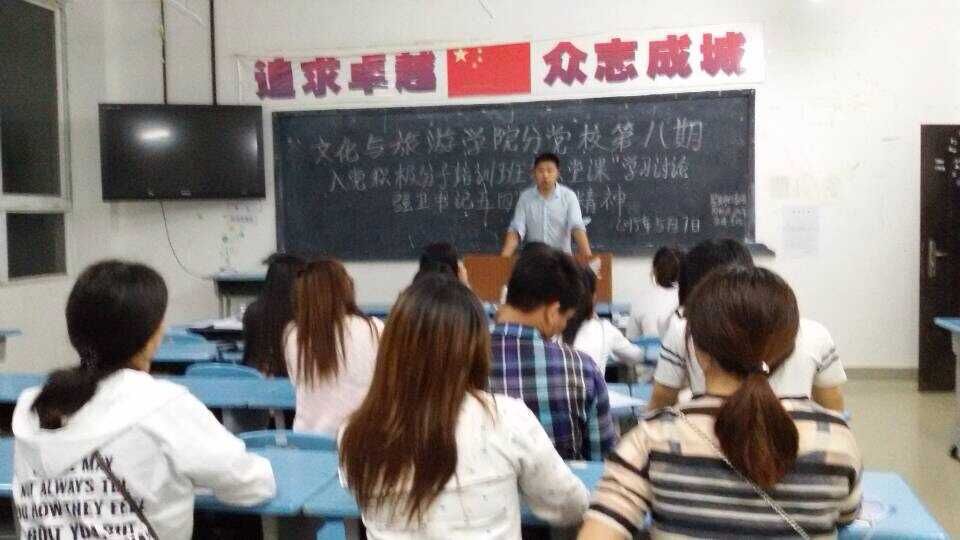 追求卓越 众志成城
文化与旅游学院分党校第八期
入党积极分子培训班 党课"学习讨论
强卫书记在四 精神
2015年5月7日
MAY
NOT ALWAYS TELL
YOU HOW THEY FEEL
ABOUT YOU